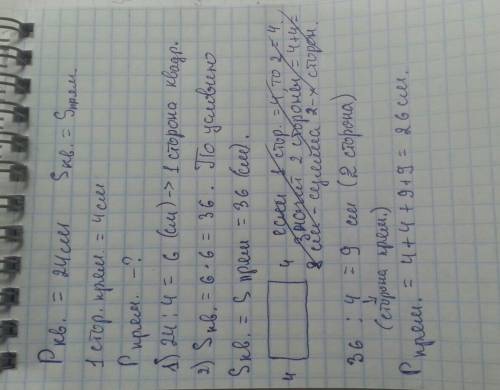 Pкв. = 24 см Sкв. = Sпрям.
1 стор. прям. = 4 см
Pпрям. – ?
1) 24 : 4 = 6 (см) -> 1 сторона квадр.
2) Sкв. = 6 · 6 = 36. По условию
Sкв. = Sпрям = 36 (см).
4 если 1 стор. = 4, то 2 = 4.
4 Значит 2 стороны = 4+4=
8 см - сумма 2-х сторон.
36 : 4 = 9 см (2 сторона)
(сторона прям.)
Pпрям. = 4 + 4 + 9 + 9 = 26 см.